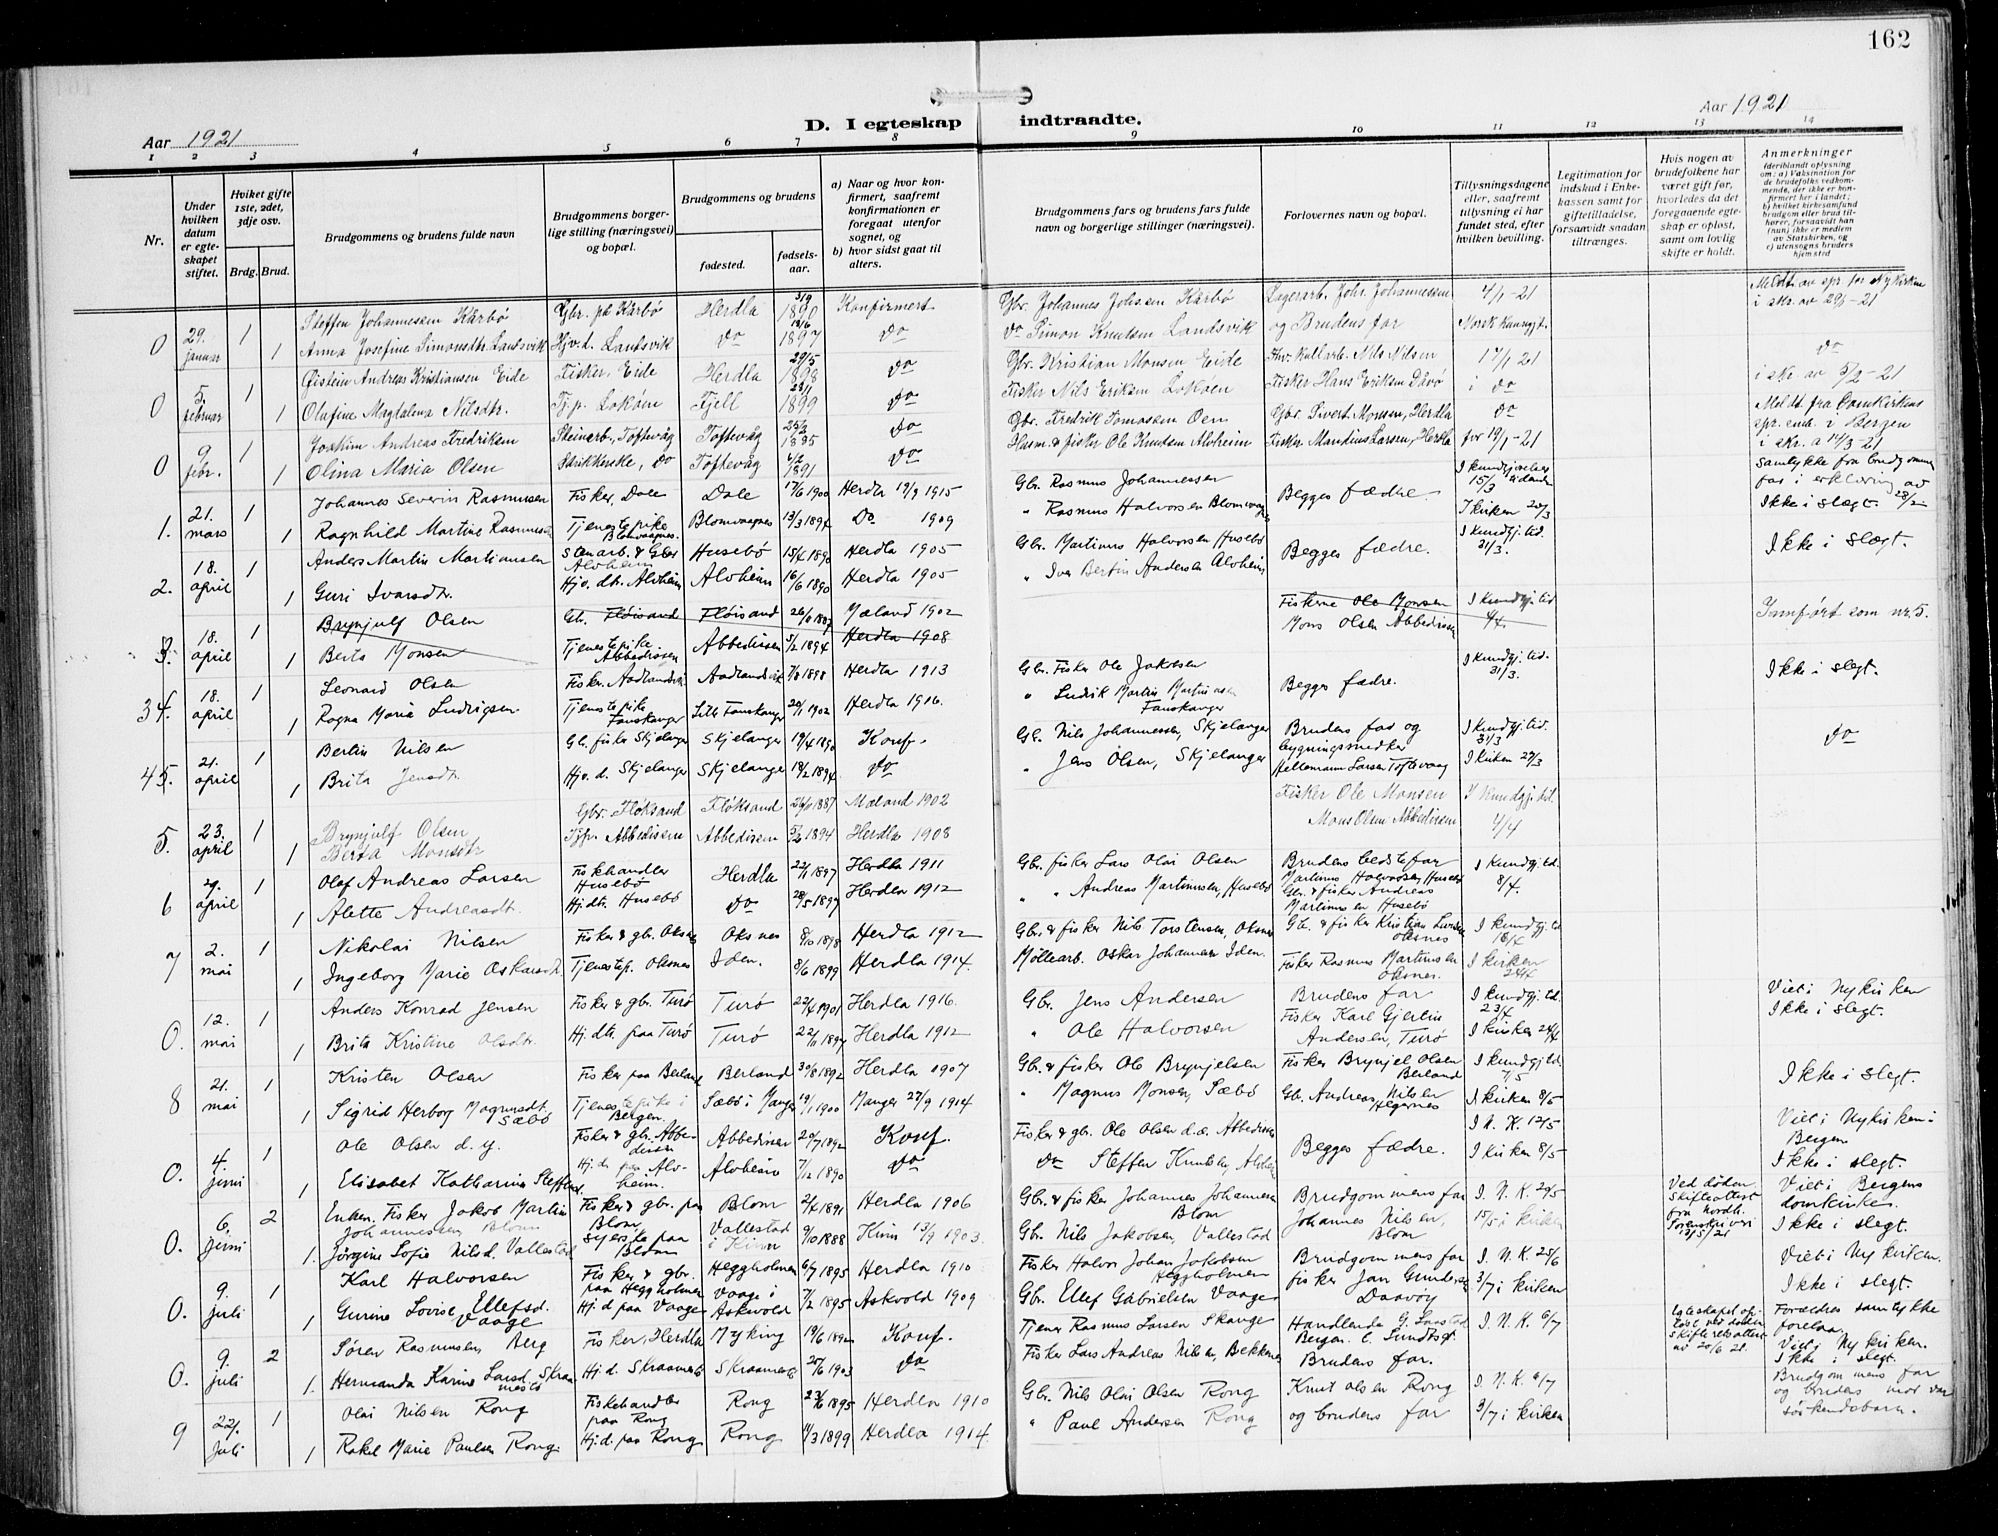 162
Aar 1921
D. I egteskap indtraadte.
Aar 1921
1 2 3 4 5 6 7 8 9 10 11 12 13 14
Nr.
Under hvilken datum er egteskapet stiftet.
Hvilket gifte 1ste, 2det, 3dje osv.
Brdg. Brud.
Brudgommens og brudens fulde navn
Brudgommens borgerlige stilling (næringsvei) og bopæl.
Brudgommens og brudens
fødested.
fødselsaar.
a) Naar og hvor konfirmert, saafremt konfirmationen er foregaat utenfor sognet, og
b) hvor sidst gaat til alters.
Brudgommens fars og brudens fars fulde navn og borgerlige stillinger (næringsvei).
Forlovernes navn og bopæl.
Tillysningsdagene eller, saafremt tillysning ei har fundet sted, efter hvilken bevilling.
Legitimation for indskud i Enkekassen samt for giftetilladelse, forsaavidt saadan tiltrænges.
Hvis nogen av brudefolkene har været gift før, hvorledes da det foregaaende egteskap er opløst, samt om lovlig skifte er holdt.
Anmerkninger
0 29. januar 1 Steffen Johannesen Kårbø Gbr. på Kårbø Herdla 1890 Konfirmert Gbr. Johannes Johsen Kårbø Lagerarb. Johs. Johannessen 4/1-21
1 Anna Josefine Simonsdtr. Landsvik Hj.v.d. Landsvik do 1897 do do Simon Knutsen Landsvik og Brudens far
0 5. februar 1 Øistein Andreas Kristiansen Eide Fisker, Eide Herdla 29/5 1898 do Gbr. Kristian Monsen Eide Nils Nilsen 17/1 21 do
1 Olufine Magdalena Nilsdtr. Tj.p. Lokøen Fjell 1899 do Fisker Nils Eriksen Lokøen Fisker Hans Eriksen i do i skr. av 5/2-21
0 9 febr. 1 Joakim Andreas Fredriksen Steinarb., Toftevåg Toftevåg 25/2 1895 do Gbr. Fredrik Tomassen Oen Gbr. Sivert Monsen, Herdla do
1 Olina Maria Olsen Strikkerske, do Toftevåg 6/2 1891 do Husm. & fisker Ole Knutsen Alvheim Fisker Mandius Larsen, Herdla før 19/1-21
1. 21. mars 1 Johannes Severin Rasmussen Fisker, Dale Dale 17/6 1900 Herdla 19/9 1915 Gbr. Rasmus Johannessen Begges fædre. 15/3
1 Ragnhild Martine Rasmusdtr Tjenestepike Blomvaagnes. Blomvaagnes 13/3 1894 Do 1909 " Rasmus Halvorsen Blomvaag I kirken 20/3 Ikke i slegt.
2. 18. april 1 Anders Martin Martinussen Stenarb. & Gbr Alvheim Husebø 15/5 1890 Herdla 1905 Gbr. Martinus Halvorsen Husebø Begges fædre. I kundgj. tid. 21/3. Ikke i slegt.
1 Guri Ivarsdtr. Hjv. dtr. Alvheim Alvheim 16/6 1890 Herdla 1905 " Iver Bertin Andersen Alvheim,
3. 18. april 1 Brynjulf Olsen Gb. Fløisand Fløisand 26/1 1887 Mæland 1902 Fiskerne Ole Monsen I kundgj. tid 4/4. Innført som nr. 5.
1 Berta Monsen Tjenestepike Abbedissen Abbedissen 5/2 1894 Herdla 1908 Mons Olsen Abbedissen
34. 18. april 1 Leonard Olsen Fisker. Aadlandsvik Aadlandsvik 7/8 1898 Herdla 1913 Gbr. Fisker Ole Jakobsen Begges fædre. I kundgj. tid. 31/3. Ikke i slegt.
1 Ragna Maria Ludvigsen. Tjenestepike Fanskanger Litle Fanskanger 20/1 1902 Herdla 1916. " Ludvik Martin Martinussen Fanskanger
45. 21. april 1 Bertin Nilsen Gb. fisker Skjelanger Skjelanger 19/4 1890 Konf. Gb. Nils Johannessen, Skjelanger Brudens far og bygningssnedker I kundgj. tid. 31/3 do
1 Brita Jensdtr. Hjv. d. Skjelanger Skjelanger 18/2 1894 do " Jens Olsen, Skjelanger Hellemann Larsen Toftevaag I kirken 27/3
5. 23. april 1 Brynjulf Olsen Gbr. Fløksand Fløksand 26/1 1887 Mæland 1902 Fisker Ole Monsen I kundgj. tid.
1 Berta Monsdtr Tjp. Abbedissen Abbedissen 5/2 1894 Herdla 1908 Mons Olsen Abbedissen 4/4
6 29. april 1 Olaf Andreas Larsen Fiskhandler Husebø Herdla 22/1 1897 Herdla 1911 Gbr. fisker Lars Olai Olsen Brudens bedstefar Martinus Halvorsen, Husebø I kundgj. tid. 8/4.
1 Alette Andreasdtr. Hj. dtr. Husebø do 28/5 1897 Herdla 1912 " Andreas Martinussen, Husebø Gbr. & fisker Andreas Martinussen Husebø
7 2. mai 1 Nikolai Nilsen Fisker & gbr. Oksnes Oksnes 8/10 1898 Herdla 1912 Gbr. & fisker Nils Torstensen, Oksnes Gb. & fisker Kristian Larsen Oksnes I kundgj. tid 18/4
1 Ingeborg Marie Oskarsdtr. Tjenestep. Oksnes Iden. 8/6 1899 Herdla 1914. Møllearb. Oskar Johannesen Iden. Fisker Rasmus Martinussen Oksnes. I kirken 24/4
0. 12. mai 1 Anders Konrad Jensen Fisker & gbr. Turø Turø 22/4 1901 Herdla 1916. Gbr. Jens Andersen Brudens far I kundgj. td. 23/4 Viet i Nykirken
1 Brita Kristine Olsdtr. Hj. dtr. paa Turø Turø 22/11 1894 Herdla 1912 " Ole Halvorsen Fisker Karl Gjertin Andersen, Turø I kirken 24/4 Ikke i slegt.
8 21. mai 1 Kristen Olsen Fisker paa Berland Berland 30/8 1892 Herdla 1907 Gb. & fisker Ole Brynjelsen Fisker Brynjel Olsen Berland I kundgj. td. 7/5 Ikke i slegt.
1 Sigrid Herborg Magnusdtr. Sæbø Tjenestepike i Bergen. Sæbø i Manger 19/1 1900 Manger 27/9 1914 " Magnus Monsen, Sæbø Gb. Andreas Nilsen Hegernes I kirken 8/5
0. 4. juni 1 Ole Olsen d. y. Fisker & gbr. Abbedissen Abbedissen 20/7 1892 Konf. Fisker & gb. Ole Olsen d.e. Abbedissen Begges fædre. I. N. K. 12/5 Viet i Nykirken i Bergen
1 Elisabet Katharina Steffensd. Hj. d. paa Alvheim. Alvheim 7/12 1890 do do Steffen Knutsen, Alvheim I kirken 8/5 Ikke i slegt.
0. 6. juni 2 Enkem. Fisker Jakob Martin Johannessen Blom Fisker & gbr. paa Blom Blom 2/4 1891 Herdla 1906 Gbr. & fisker Johannes Johannesen Blom Brudgommens far I. N. K. 24/5 Ved døden. Skifteattest fra Nordh. Sorenskriveri 18/5/21 Viet i Bergens domkirke.
1. Jørgine Sofie Nilsd. Vallestad syerske paa Blom Vallestad i Kinn 9/10 1888 Kinn 13/9 1903. Gbr. Nils Jakobsen, Vallestad Johannes Nilsen, Blom 15/5 i kirken Ikke i slegt.
0. 9. juli 1 Karl Halvorsen Fisker & gbr. paa Heggholmen Heggholmen 6/7 1895 Herdla 1910 Fisker Halvor Johan Jakobsen Heggholmen Brudgommens far I. N. K. 25/6 Viet i Nykirken.
1 Gurine Lovise Ellefsd. Vaage Hj. d. paa Vaage Vaage i Askvold 7/2 1895 Askvold 1909 Gbr. Ellef Gabrielsen Vaage fisker Jan Gundersen Daavøy 3/7 i kirken Ikke i slegt.
0. 9. juli 2 Søren Rasmussen Berg Fisker, Herdla Myking 19/6 1892 Konf. Tjener Rasmus Larsen Skauge Handlende G. Bergen. C. Sundtsgt. I. N. K. 6/7 Egteskapet opløst ved døden. Skifteretsattest av 20/6 21. Forældres samtykke forelaa. Viet i Nykirken.
1. Hermanda Karine Larsd. Skraamestø Hj. d. Skraamestø Skraamestø 25/6 1903 do Fisker Lars Andreas Nilsen, Bekken Brudens far. Ikke i slegt.
9 22. Juli 1 Olai Nilsen Rong Fiskehandler paa Rong Rong 23/6 1895 Herdla 1910 Gbr. Nils Olai Olsen Rong Knut Olsen Rong I. N. K. 9/7 Brudgommens far og brudens mor var søskendebarn.
1 Rakel Marie Paulsen Rong. Hj. d. paa Rong Rong 11/3 1899 Herdla 1914. " Paul Andersen Rong og brudens far 3/7 i kirken